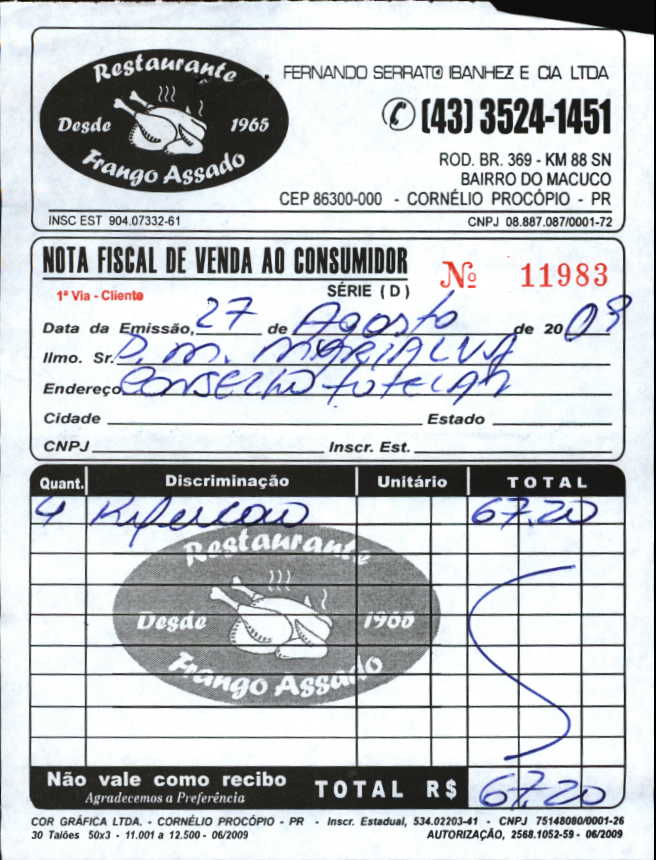 Restaurante
Desde 1965
Frango Assado
FERNANDO SERRATO IBANHEZ E CIA LTDA
(43) 3524-1451
ROD. BR. 369 - KM 88 SN
BAIRRO DO MACUCO
CEP 86300-000 - CORNÉLIO PROCÓPIO - PR
INSC EST 904.07332-61 CNPJ 08.887.087/0001-72
NOTA FISCAL DE VENDA AO CONSUMIDOR
SÉRIE ( D )
Nº 11983
1ª Via - Cliente
Data da Emissão, 27 de Agosto de 2009
Ilmo. Sr. P. M. MARIALVA
Endereço CONSELHO TUTELAR
Cidade Estado
CNPJ Inscr. Est.
Quant. Discriminação Unitário TOTAL
4 Refeicao 67,20
Restaurante
Desde 1965
Frango Assado
Não vale como recibo
Agradecemos a Preferência
TOTAL R$ 67,20
COR GRÁFICA LTDA. - CORNÉLIO PROCÓPIO - PR - Inscr. Estadual, 534.02203-41 - CNPJ 75148080/0001-26
30 Talões 50x3 - 11.001 a 12.500 - 06/2009 AUTORIZAÇÃO, 2568.1052-59 - 06/2009